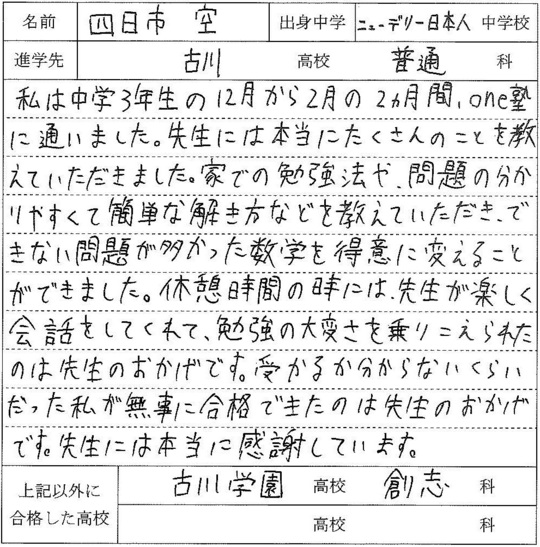 名前 四日市 空 出身中学 ニューデリー日本人 中学校
進学先 古川 高校 普通 科
私は中学3年生の12月から2月の2ヵ月間、one塾
に通いました。先生には本当にたくさんのことを教
えていただきました。家での勉強法や、問題の分か
りやすくて簡単な解き方などを教えていただき、で
きない問題が多かった数学を得意に変えること
ができました。休憩時間の時には、先生が楽しく
会話をしてくれて、勉強の大変さを乗りこえられた
のは先生のおかげです。受かるか分からないくらい
だった私が無事に合格できたのは先生のおかげ
です。先生には本当に感謝しています。
上記以外に
合格した高校
古川学園 高校 創志 科
高校 科